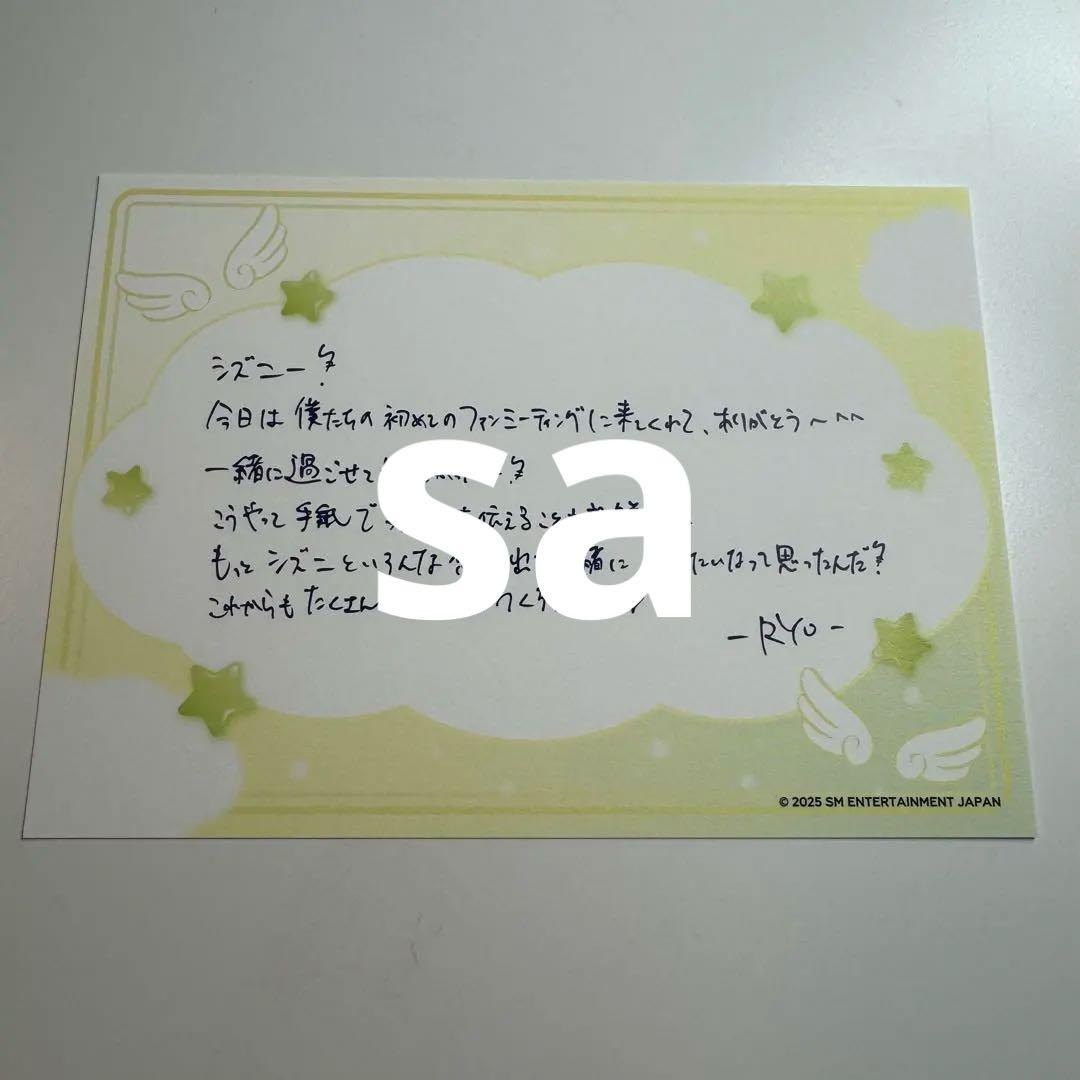 シズニー!
今日は僕たちの初めてのファンミーティングに来てくれて、ありがとう〜^^
一緒に過ごせて
sa
こうやって手紙で 伝えること
もっとシズニといろんな 出 緒に たいなって思ったんだ!
これからもたくさん つくろ
-RYO-
© 2025 SM ENTERTAINMENT JAPAN